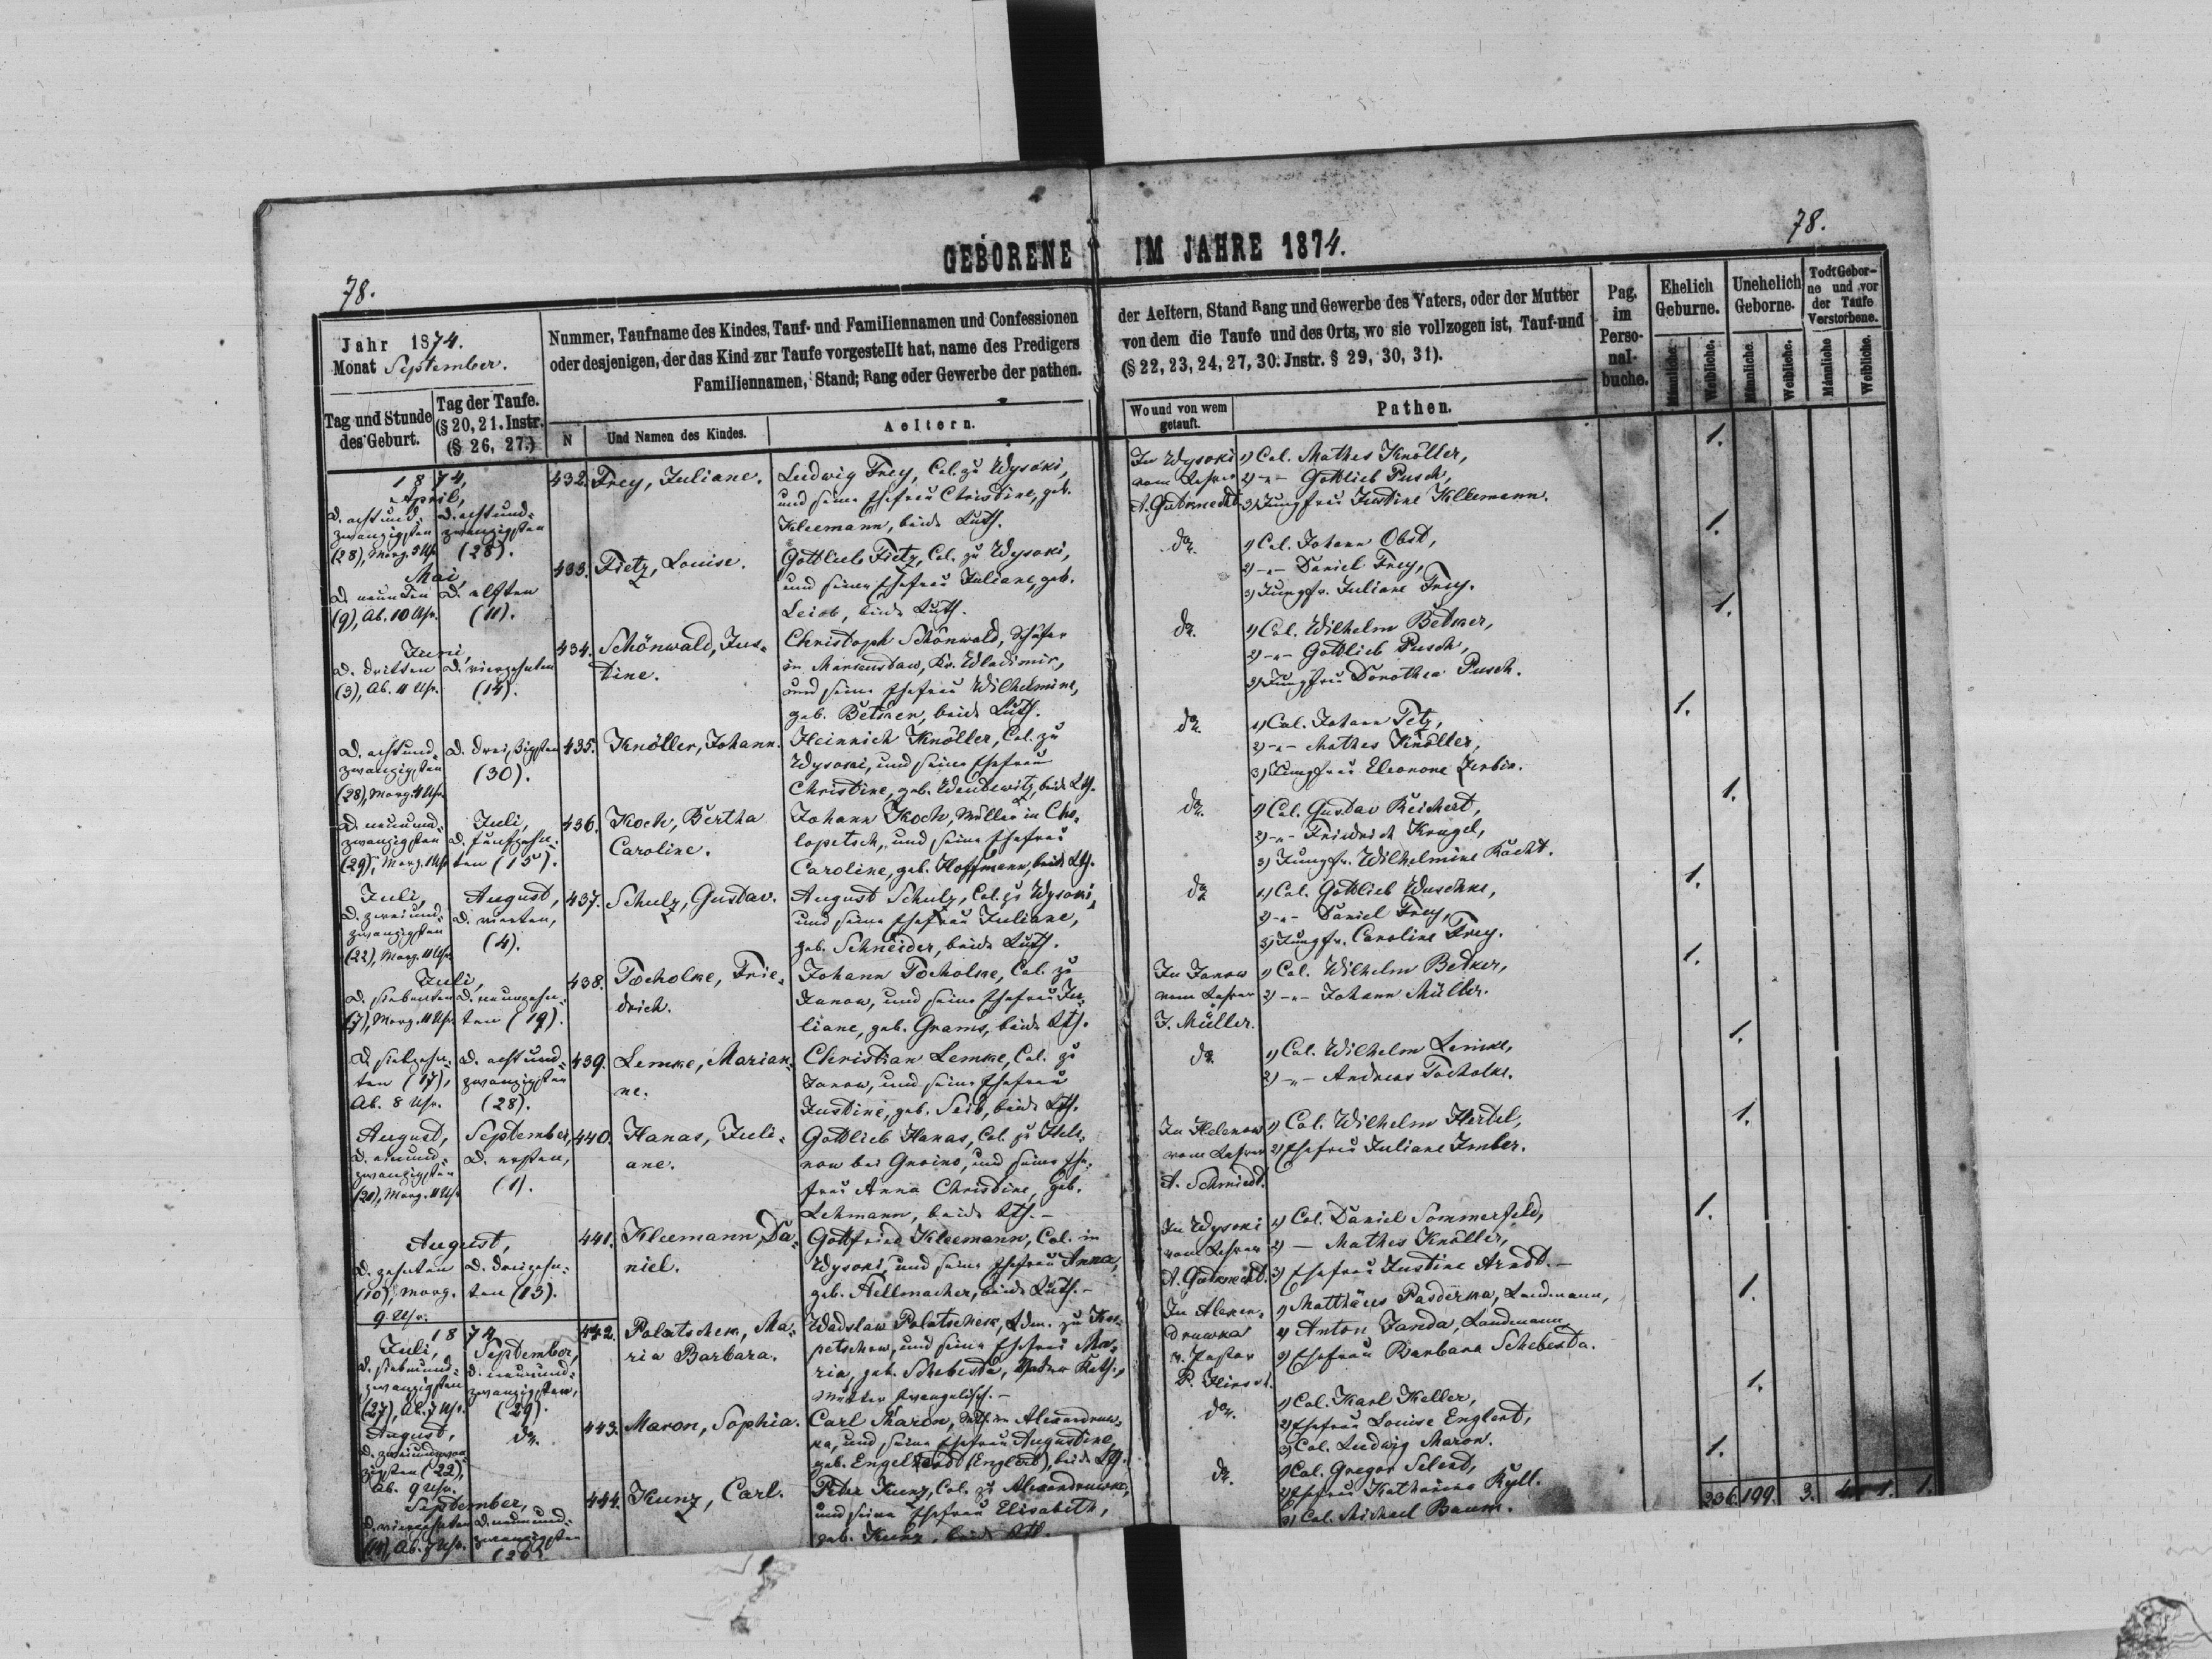 78.
GEBORENE IM JAHRE 1874.
78.
Jahr 1874.
Monat September.
Tag und Stunde
des Geburt.
Tag der Taufe.
(§ 20, 21. Instr.
(§ 26, 27.)
Nummer, Taufname des Kindes, Tauf- und Familiennamen und Confessionen
oder desjenigen, der das Kind zur Taufe vorgestellt hat, name des Predigers
Familiennamen, Stand; Rang oder Gewerbe der pathen.
N
Und Namen des Kindes.
Aeltern.
der Aeltern, Stand Rang und Gewerbe des Vaters, oder der Mutter
von dem die Taufe und des Orts, wo sie vollzogen ist, Tauf-und
(§ 22, 23, 24, 27, 30. Jnstr. § 29, 30, 31).
Wo und von wem
getauft.
Pathen.
Pag.
im
Perso-
nal-
buche.
Ehelich
Geburne.
Unehelich
Geborne.
Todt Gebor-
ne und vor
der Taufe
Verstorbene.
Männliche.
Weibliche.
Männliche.
Weibliche.
Männliche
Weibliche.
1874,
April,
D. achtund-
zwanzigsten
(28), Morg. 5 Uhr
D. achtund-
zwanzigsten
(28).
432.
Frey, Juliane.
Ludwig Frey, Col. zu Wysoki,
und seine Ehefrau Christine, geb.
Kleemann, beide Luth.
In Wysoki
vom Lehrer
A. Gutknecht
1) Col. Mathes Knöller,
2) -"- Gottlieb Pusch,
3) Jungfrau Justine Kleemann.
1.
Mai,
D. neunten
(9), Ab. 10 Uhr.
D. elften
(11).
433.
Fietz, Louise.
Gottlieb Fietz, Col. zu Wysoki,
und seine Ehefrau Juliane, geb.
beide Luth.
do.
1) Col. Johann Obst,
2) -"- Daniel Frey,
3) Jungfr. Juliane Frey.
1.
Juni,
D. dritten
(3), Ab. 11 Uhr.
D. vierzehnten
(14).
434.
Schönwald, Jus-
tine.
Christoph Schönwald, Schäfer
in Kr. Wladimir,
und seine Ehefrau Wilhelmine,
geb. Betker, beide Luth.
do.
1) Col. Wilhelm Betker,
2) -"- Gottlieb Pusch,
3) Jungfrau Dorothea Pusch.
1.
D. achtund-
zwanzigsten
(28), Morg. 4 Uhr
D. dreißigsten
(30).
435.
Knöller, Johann.
Heinrich Knöller, Col. zu
Wysoki, und seine Ehefrau
Christine, geb. beide Lth.
do.
1) Col. Johann Tetz,
2) -"- Mathes Knöller,
3) Jungfrau Eleonore Zerbin.
1.
D. neunund-
zwanzigsten
(29), Morg. 1 Uhr
Juli,
D. fünfzehn-
ten (15).
436.
Koch, Bertha
Caroline.
Johann Koch, Müller in Cho-
lopetsch, und seine Ehefrau
Caroline, geb. Hoffmann, beide Lth.
do.
1) Col. Gustav Reichert,
2) -"- Friedrich Krugel,
3) Jungfr. Wilhelmine
1.
Juli,
D. zweiund-
zwanzigsten
(22), Morg. 11 Uhr
August,
D. vierten,
(4).
437.
Schulz, Gustav.
August Schulz, Col. zu Wysoki,
und seine Ehefrau Juliane,
geb. Schneider, beide Luth.
do
1) Col. Gottlieb Waschke,
2) -"- Daniel Frey,
3) Jungfr. Caroline Frey.
1.
Juli,
D. siebenten
(7), Morg. 11 Uhr
D. neunzehn-
ten (19).
438.
Tocholke, Frie-
drich.
Johann Tocholke, Col. zu
Janow, und seine Ehefrau Ju-
liane, geb. Grams, beide Lth.
In Janow
vom Lehrer
J. Müller.
1) Col. Wilhelm Betker,
2) -"- Johann Müller.
1.
D. siebzehn-
ten (17),
Ab. 8 Uhr.
D. achtund-
zwanzigsten
(28).
439.
Lemke, Marian-
ne.
Christian Lemke, Col. zu
Janow, und seine Ehefrau
Justine, geb. Seib, beide Lth.
do.
1) Col. Wilhelm Lemke,
2) -"- Andreas Tocholke.
1.
August,
D. einund-
zwanzigsten
(21), Morg. 11 Uhr
September,
D. ersten,
(1).
440.
Hanas, Juli-
ane.
Gottlieb Hanas, Col. zu Hele-
now bei Gnoino, und seine Ehe-
frau Anna Christine, geb.
Lehmann, beide Lth.-
In Helenow
vom Lehrer
A. Schmiedt.
1) Col. Wilhelm Hertel,
2) Ehefrau Juliane Imber.
1.
August,
D. zehnten
(10), Morg.
9 Uhr.
D. dreizehn-
ten (13).
441.
Kleemann, Da-
niel.
Gottfried Kleemann, Col. in
Wysoki, und seine Ehefrau Anna,
geb. Hellmacher, beide Luth.-
In Wysoki
vom Lehrer
A. Gutknecht.
1) Col. Daniel Sommerfeld,
2) - Mathes Knöller,
3) Ehefrau Justine Arndt.-
1.
1874
Juli,
D. siebenund-
zwanzigsten
(27), Ab. 7 Uhr.
September,
D. neunund-
zwanzigsten,
(29).
442.
Polatschek, Ma-
ria Barbara.
Wadslaw Polatschek, zu
und seine Ehefrau Ma-
ria, geb. Schebesta, Vater Kath.,
Mutter Evangelisch.-
In Alexan-
druwka
v. Pastor
P.
1) Matthäus Pasderka, Landmann,
2) Anton Janda, Landmann,
3) Ehefrau Barbara Schebesta.
1.
August,
D. zweiundzwan-
zigsten (22),
Ab. 9 Uhr.
do.
443.
Maron, Sophia.
Carl Maron, in Alexandruw-
ka, und seine Ehefrau Augustine
geb. (Englert), beide Lth.
do.
1) Col. Karl Keller,
2) Ehefrau Louise Englert,
3) Col. Ludwig Maron.
1.
September,
D. vierzehnten
(14), Ab. 7 Uhr.
D. neunund-
zwanzigsten
444.
Kunz, Carl.
Peter Kunz, Col. zu Alexandruwka,
und seine Ehefrau Elisabeth,
geb. Kunz, beide Lth.
do.
1) Col. Gregor
2) Ehefrau Katharina
3) Col. Michael Baum.
1.
236. 199. 3. 4. 1. 1.